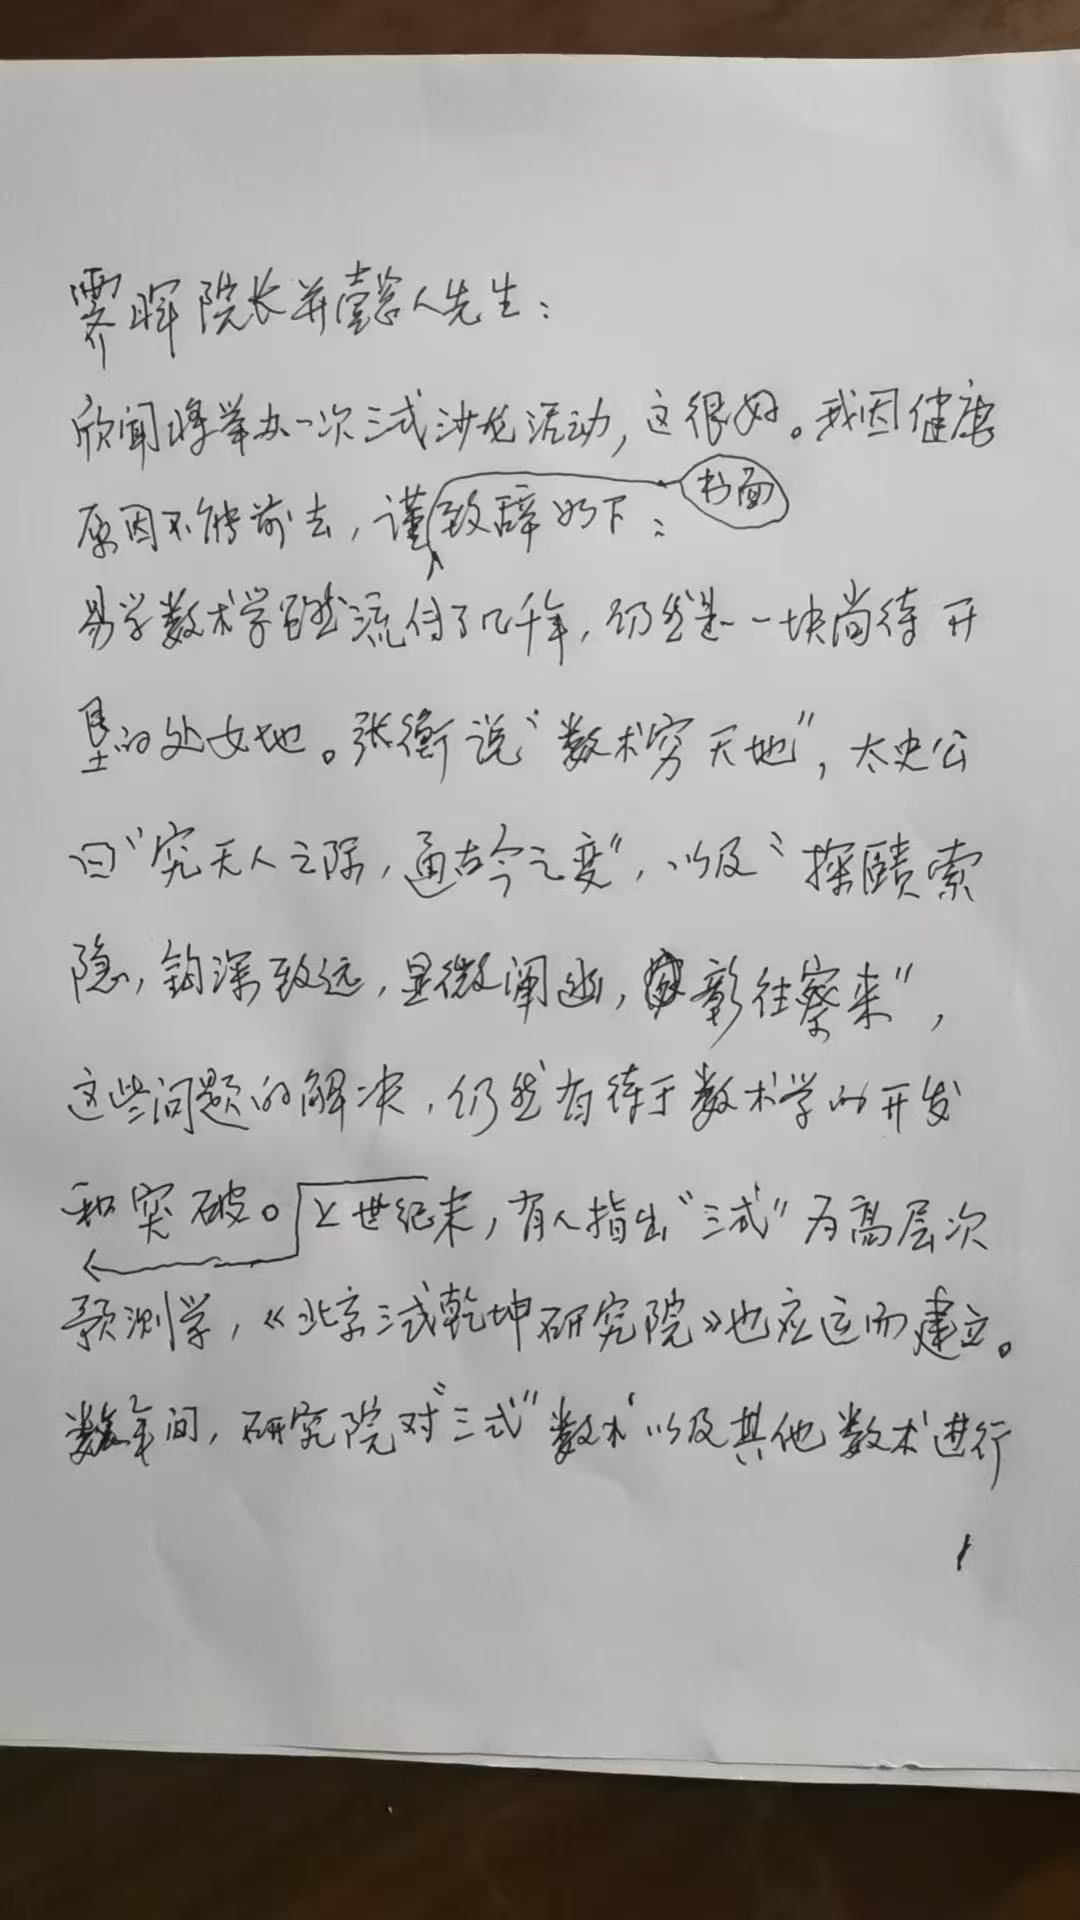 霁晖院长并壶公人先生：
欣闻将举办一次三式沙龙活动，这很好。我因健康
原因不能前去，谨书面致辞如下：
易学数术学虽然流传了几千年，仍然是一块尚待开
垦的处女地。张衡说“数术穷天地”，太史公
曰“究天人之际，通古今之变”，以及“探赜索
隐，钩深致远，显微阐幽，彰往察来”，
这些问题的解决，仍然有待于数术学的开发
和突破。
上世纪末，有人指出“三式”为高层次
预测学，《北京三式乾坤研究院》也应运而建立。
数年间，研究院对“三式”数术以及其他数术进行
1